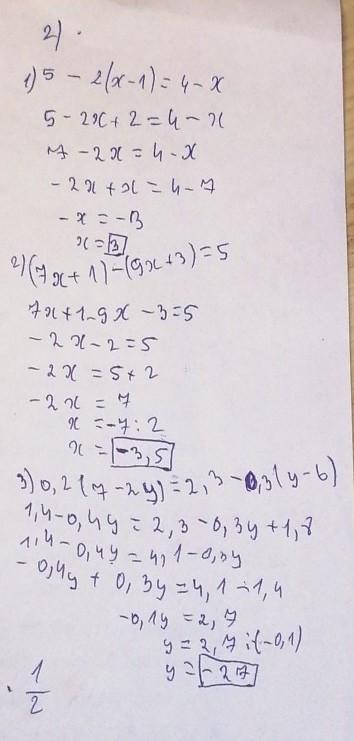 2)
1) 5 - 2(x-1) = 4 - x
5 - 2x + 2 = 4 - x
7 - 2x = 4 - x
- 2x + x = 4 - 7
- x = - 3
x = 3
2) (7x + 1) - (9x + 3) = 5
7x + 1 - 9x - 3 = 5
- 2x - 2 = 5
- 2x = 5 + 2
- 2x = 7
x = -7 : 2
x = -3,5
3) 0,2(7 - 2y) = 2,3 - 0,3(y - 6)
1,4 - 0,4y = 2,3 - 0,3y + 1,8
1,4 - 0,4y = 4,1 - 0,3y
- 0,4y + 0,3y = 4,1 - 1,4
-0,1y = 2,7
y = 2,7 : (-0,1)
y = -27
1
2